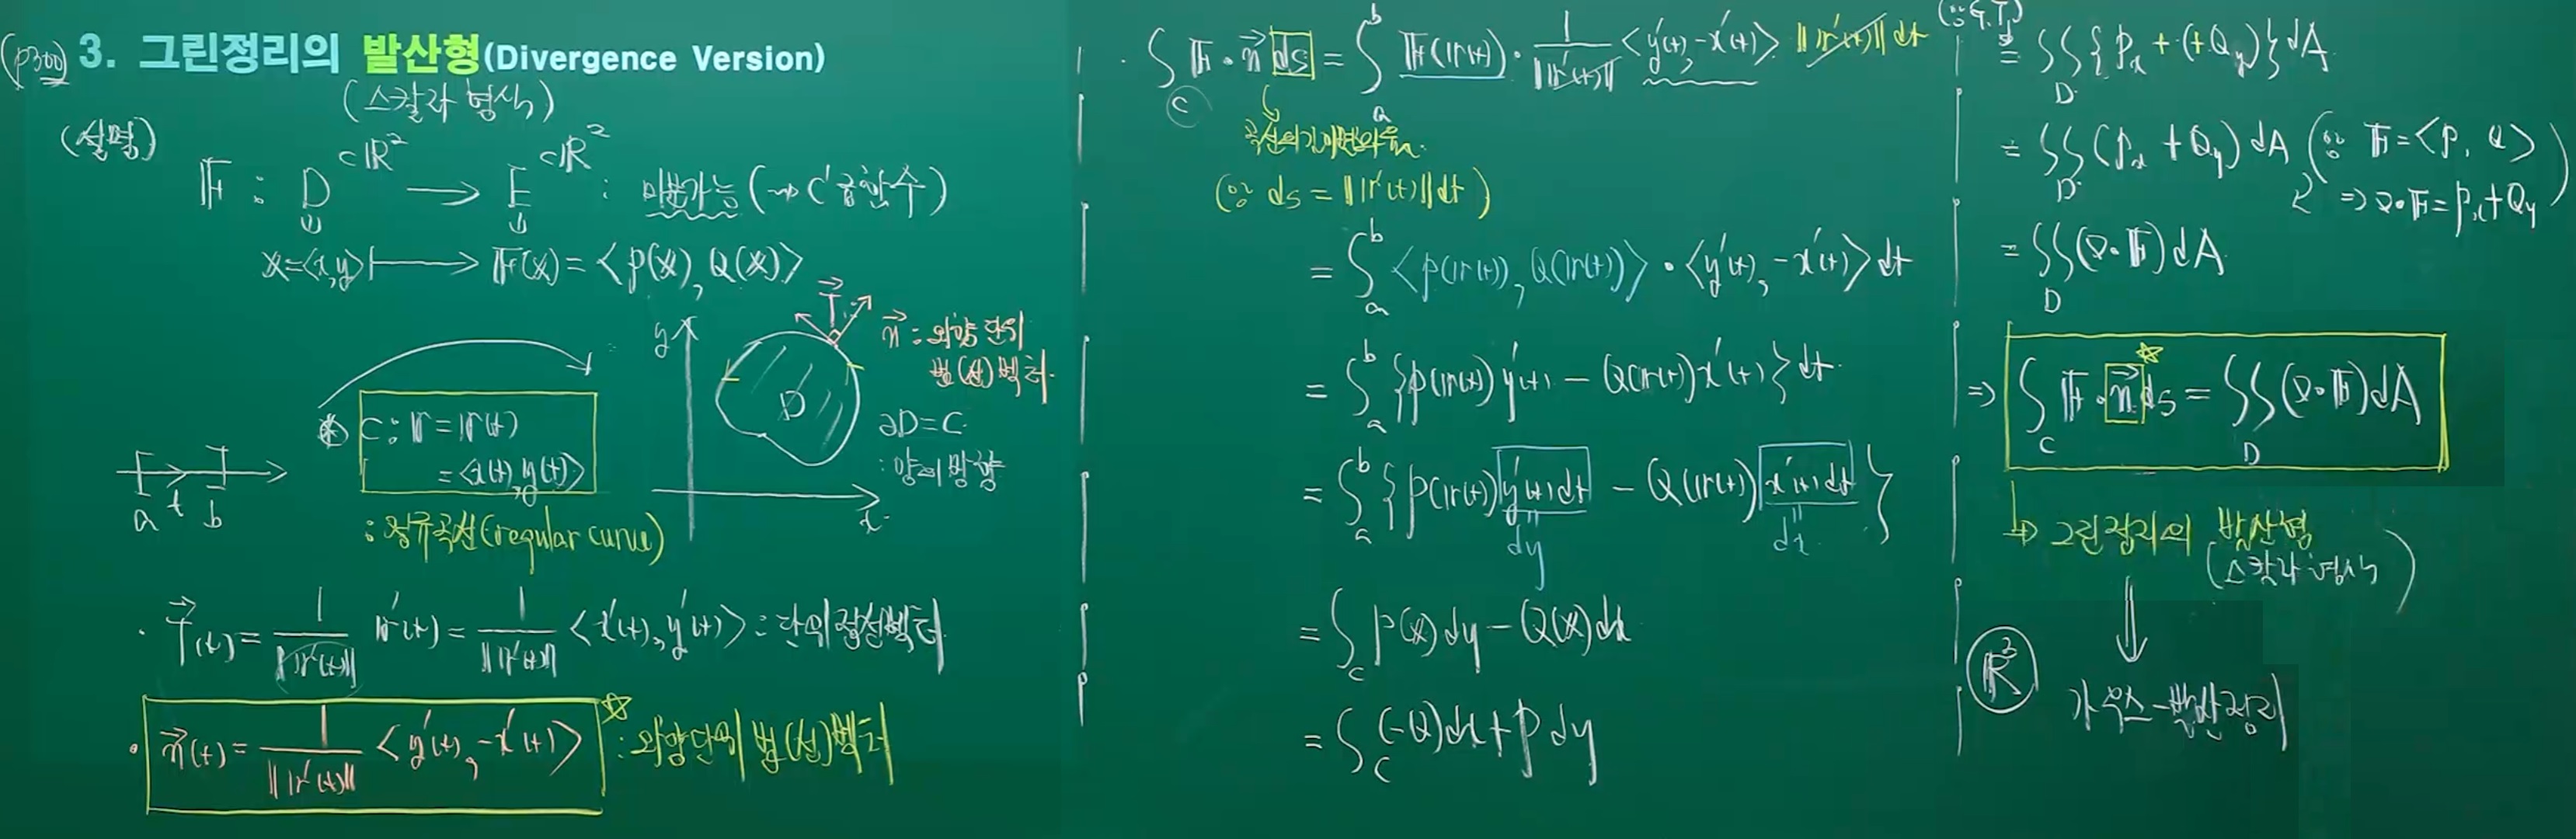 (p300) 3. 그린정리의 발산형(Divergence Version)
(스칼라 형식)
(설명)
𝔽 : D ⊂ℝ² → E ⊂ℝ² : 미분가능 (→ C¹급함수)
𝕏=<x,y> ↦ 𝔽(𝕏) = <P(𝕏), Q(𝕏)>
C : 𝕣 = 𝕣(t)
= <x(t), y(t)>
: 정규곡선(regular curve)
a t b
y
T⃗
D
x
n⃗ : 외향 단위
법(선)벡터.
∂D = C.
: 양의 방향
· T⃗(t) = 1/‖𝕣'(t)‖ 𝕣'(t) = 1/‖𝕣'(t)‖ <x'(t), y'(t)> : 단위접선벡터
· n⃗(t) = 1/‖𝕣'(t)‖ <y'(t), -x'(t)> ☆ : 외향단위 법(선)벡터
· ∫_C 𝔽 · n⃗ ds = ∫_a^b 𝔽(𝕣(t)) · 1/‖𝕣'(t)‖ <y'(t), -x'(t)> ‖𝕣'(t)‖ dt
(∵ ds = ‖𝕣'(t)‖ dt)
= ∫_a^b <P(𝕣(t)), Q(𝕣(t))> · <y'(t), -x'(t)> dt
= ∫_a^b {P(𝕣(t)) y'(t) - Q(𝕣(t)) x'(t)} dt.
= ∫_a^b {P(𝕣(t)) y'(t) dt - Q(𝕣(t)) x'(t) dt}
dy dx
= ∫_C P(𝕏) dy - Q(𝕏) dx
= ∫_C (-Q) dx + P dy
(∵ G.T)
= ∬_D {P_x + (+Q_y)} dA
= ∬_D (P_x + Q_y) dA (∵ 𝔽 = <P, Q>
⇒ ∇·𝔽 = P_x + Q_y)
= ∬_D (∇·𝔽) dA
⇒ ∫_C 𝔽 · n⃗ ds = ∬_D (∇·𝔽) dA ☆
↳ 그린정리의 발산형
(스칼라 형식)
⇓
ℝ³ 가우스-발산정리